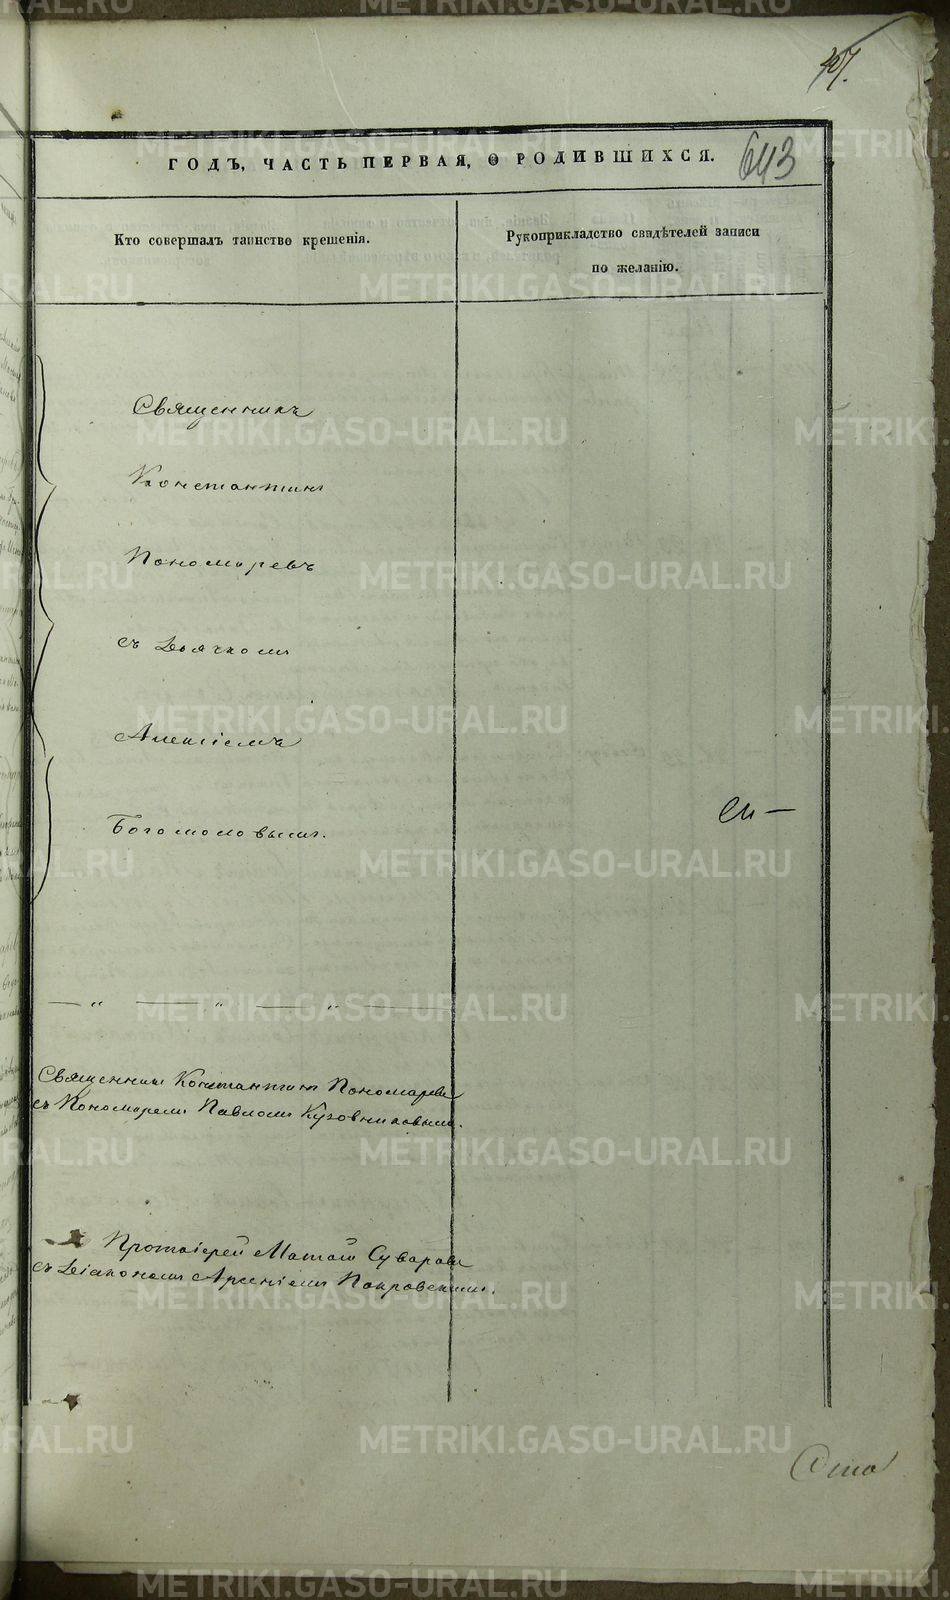 407.
ГОДЪ, ЧАСТЬ ПЕРВАЯ, О РОДИВШИХСЯ.
643
Кто совершалъ таинство крещенія.
Рукоприкладство свидѣтелей записи
по желанію.
Священникъ
Константинъ
Пономаревъ
съ Дьячкомъ
Алексіемъ
Богомоловымъ.
Священникъ Константинъ Пономаревъ
съ Пономаремъ Павломъ Кузовниковымъ.
Протоіерей Матѳій Суваровъ
съ Діакономъ Арсеніемъ Покровскимъ.
METRIKI.GASO-URAL.RU